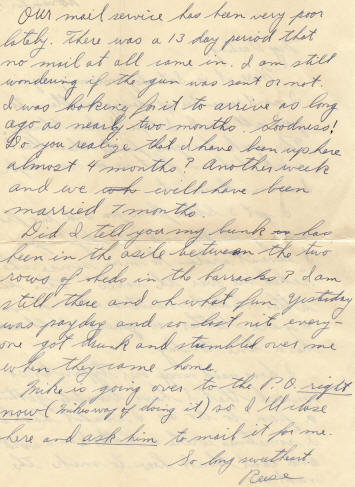 Our mail service has been very poor
lately. There was a 13 day period that
no mail at all came in. I am still
wondering if the gun was sent or not.
I was looking for it to arrive as long
ago as nearly two months. Goodness!
Do you realize that I have been up here
almost 4 months? Another week
and we will have been
married 7 months.
Did I tell you my bunk has
been in the asile between the two
rows of beds in the barracks? I am
still there and oh what fun. Yesterday
was payday and so last nite every-
one got drunk and stumbled over me
when they came home.
Mike is going over to the P.O. right
now (Mikes way of doing it) so I'll close
here and ask him to mail it for me.
So long sweetheart
Reese